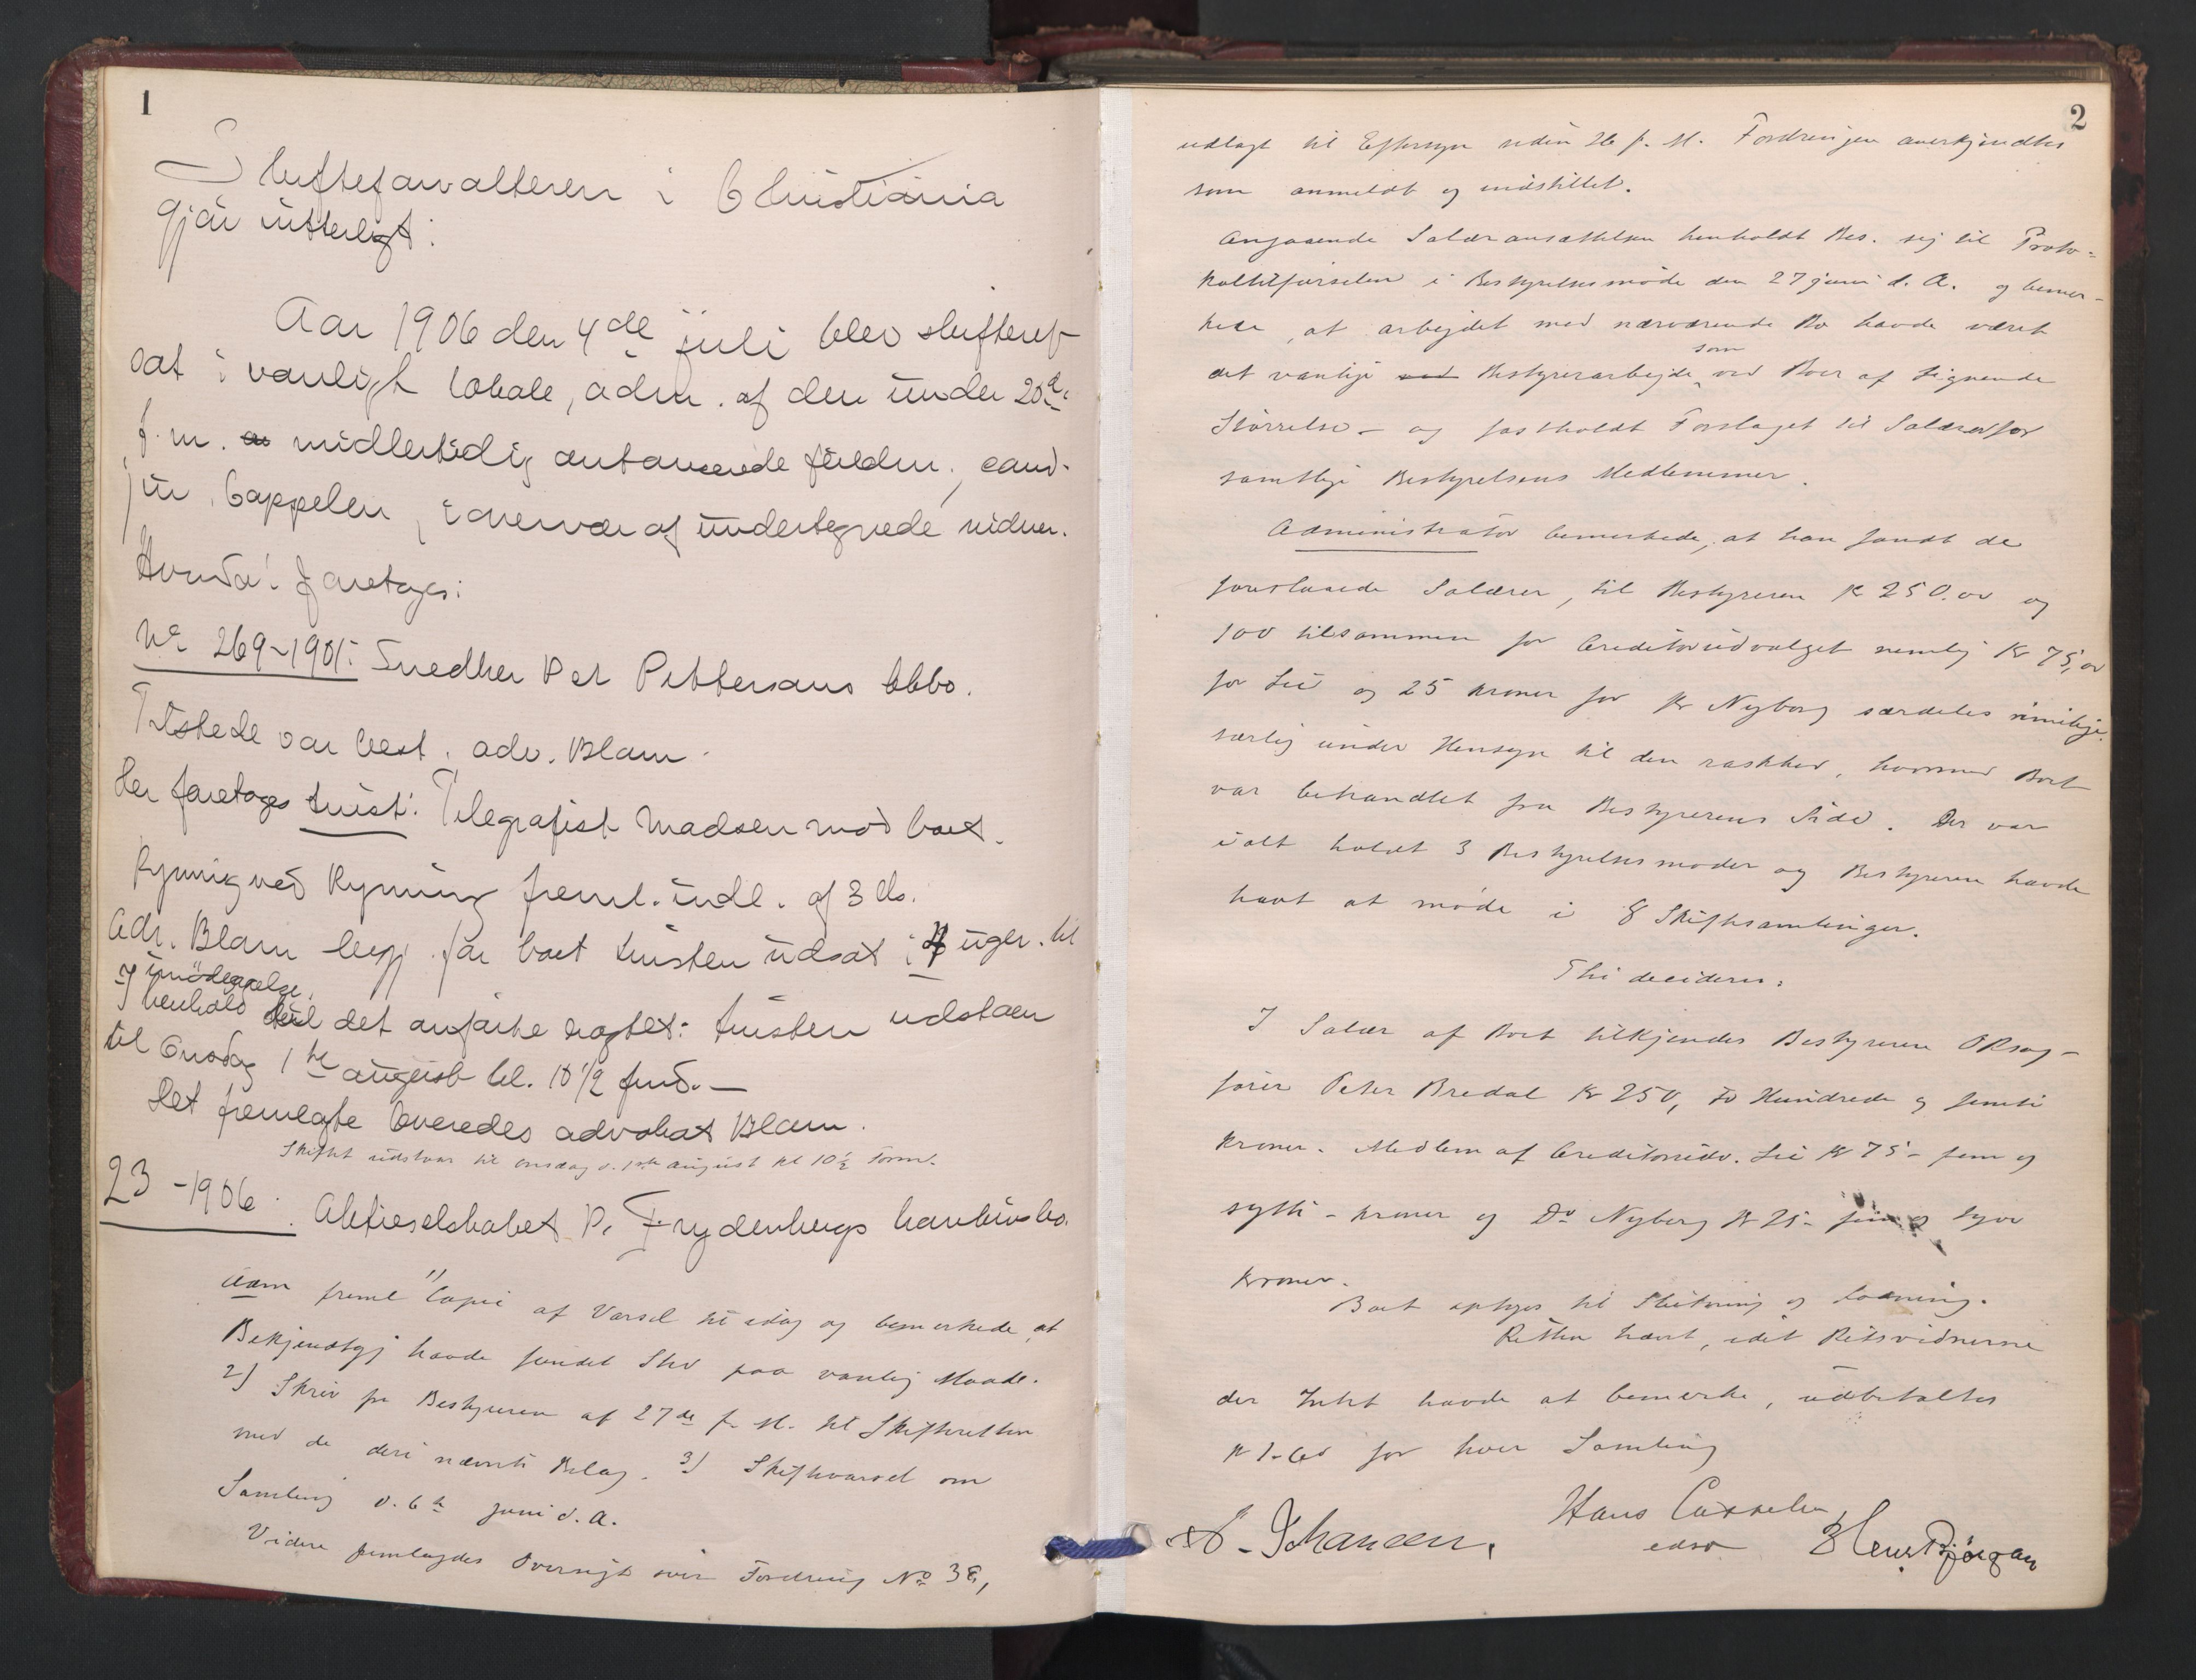 1
Skiftefarvalteren i Christiania
gjör vitterligt:
Aar 1906 den 4de juli blev skifteret
sat i vanligt lokale, adm. af den under 20de
f. m. midlertidig antagede fuldm., cand.
jur. Cappelen, i overvær af undertegnede vidner.
Hvorda! faretages:
No 269-1905 Snedker P et Pettersens kkbo.
Tilstede var best. adv. Blom.
Der faretages tvist: Telegrafist Madsen mod boet.
Rynning ved Rynning freml. indl. af 3 ds.
Adv. Blom begj. for boet tvisten udsat i 4 uger til
imödegaaelse.
I henhold til det anførte vogtet: tvisten udstaar
til Onsdag 1ste august kl. 10 1/2 form. —
Det fremlagte leveredes advokat Blom.
Skiftet udstaar til onsdag d. 1ste august kl 10 1/2 Form.
23-1906. Aktieselskabet P. Frydenbergs konkursbo.
Adm freml 1) Copi af Varsel til idag og bemerkede, at
Bekjendtgj havde fundet Sted paa vanlig Maade.
2) Skriv fra Bestyreren af 27de f. M. til Skifteretten
med de deri nævnte Bilag. 3) Skiftevarsel om
Samling d. 6te juni d. A.
Videre fremlagdes Oversigt over Fordring No 38,
2
udlagt til Eftersyn siden 26 f. M. Fordringen anerkjendtes
som anmeldt og indstillet.
Angaaende Salæransættelsen henholdt Bes. sig til Proto-
koltilførselen i Bestyrelsesmøde den 27 juni d. A. og bemer-
kede, at arbejdet med nærværende Bo havde været
som
det vanlige ved Bestyrerarbejde ved Boer af lignende
Størrelse - og fastholdt Forslaget til Salærer for
samtlige Bestyrelsens Medlemmer.
Administrator bemerkede, at han fandt de
foreslaaede Salærer, til Bestyreren K 250.00 og
100 tilsammen for Creditorudvalget nemlig Kr 75,00
for Lie og 25 Kroner for Kr Nyborg særdeles rimelige,
særlig under Hensyn til den raskhed, hvormed Boet
var behandlet fra Bestyrerens Side. Der var
ialt holdt 3 Bestyrelsesmøder og Bestyreren havde
havt at møde i 8 Skiftesamlinger.
Thi decideres:
I Salær af Boet tilkjendes Bestyreren ORsag-
fører Peter Bredal Kr 250, To Hundrede og femti
Kroner. Medlem af Creditorudv. Lie Kr 75 - fem og
sytti - Kroner og Do Nyborg Kr 25 - fem og tyve
Kroner.
Boet optages til Slutning og Lodning.
Retten hævet, idet Retsvidnerne
der Intet havde at bemerke, udbetaltes
K 1-60 for hver Samling
Hans Cappelen
edsv